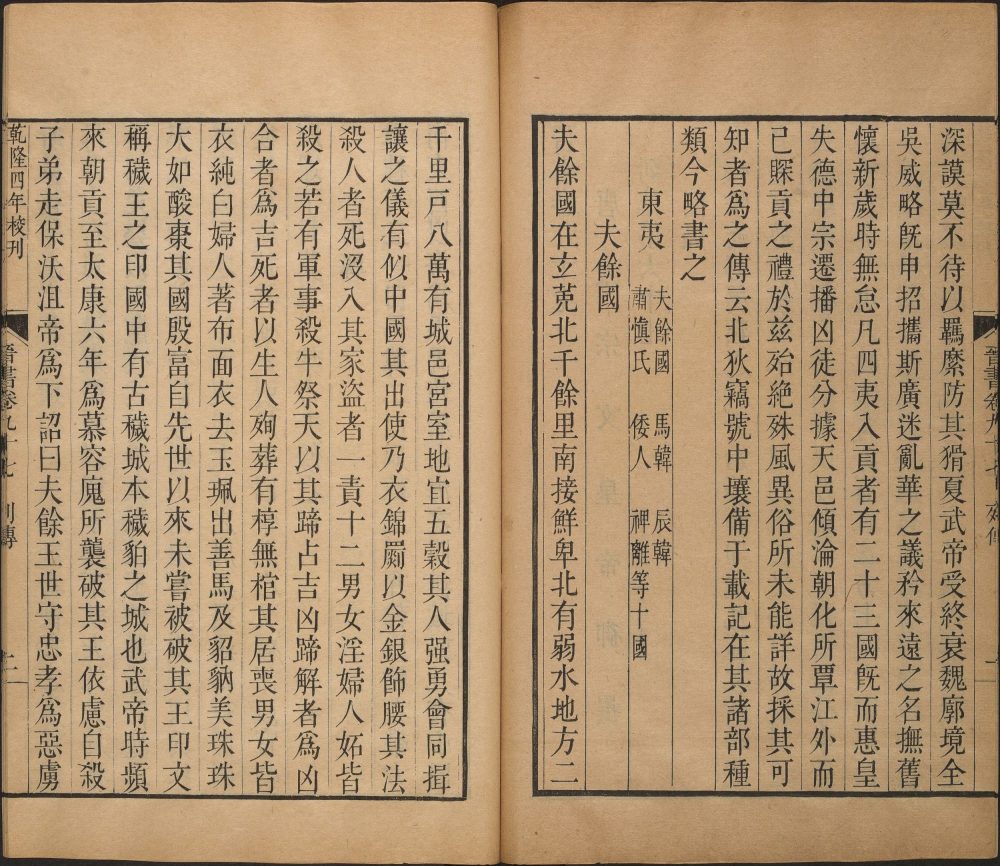 深謨莫不待以羈縻防其猾夏武帝受終衰魏廓境全
吳威略旣申招攜斯廣迷亂華之議矜來遠之名撫舊
懷新歲時無怠凡四夷入貢者有二十三國旣而惠皇
失德中宗遷播凶徒分據天邑傾淪朝化所覃江外而
己賝貢之禮於兹殆絶殊風異俗所未能詳故採其可
知者爲之傳云北狄竊號中壤備于載記在其諸部種
類今略書之
東夷
夫餘國 馬韓 辰韓
肅愼氏 倭人 裨離等十國
夫餘國
夫餘國在玄莵北千餘里南接鮮卑北有弱水地方二
晉書卷九十七
千里戸八萬有城邑宮室地宜五穀其人强勇會同揖
讓之儀有似中國其出使乃衣錦罽以金銀飾腰其法
殺人者死沒入其家盜者一責十二男女淫婦人妬皆
殺之若有軍事殺牛祭天以其蹄占吉凶蹄解者爲凶
合者爲吉死者以生人殉葬有椁無棺其居喪男女皆
衣純白婦人著布面衣去玉珮出善馬及貂豽美珠珠
大如酸棗其國殷富自先世以來未嘗被破其王印文
稱穢王之印國中有古穢城本穢貊之城也武帝時頻
來朝貢至太康六年爲慕容廆所襲破其王依慮自殺
子弟走保沃沮帝爲下詔曰夫餘王世守忠孝爲惡虜
乾隆四年校刊
晉書卷九十七 列傳 二